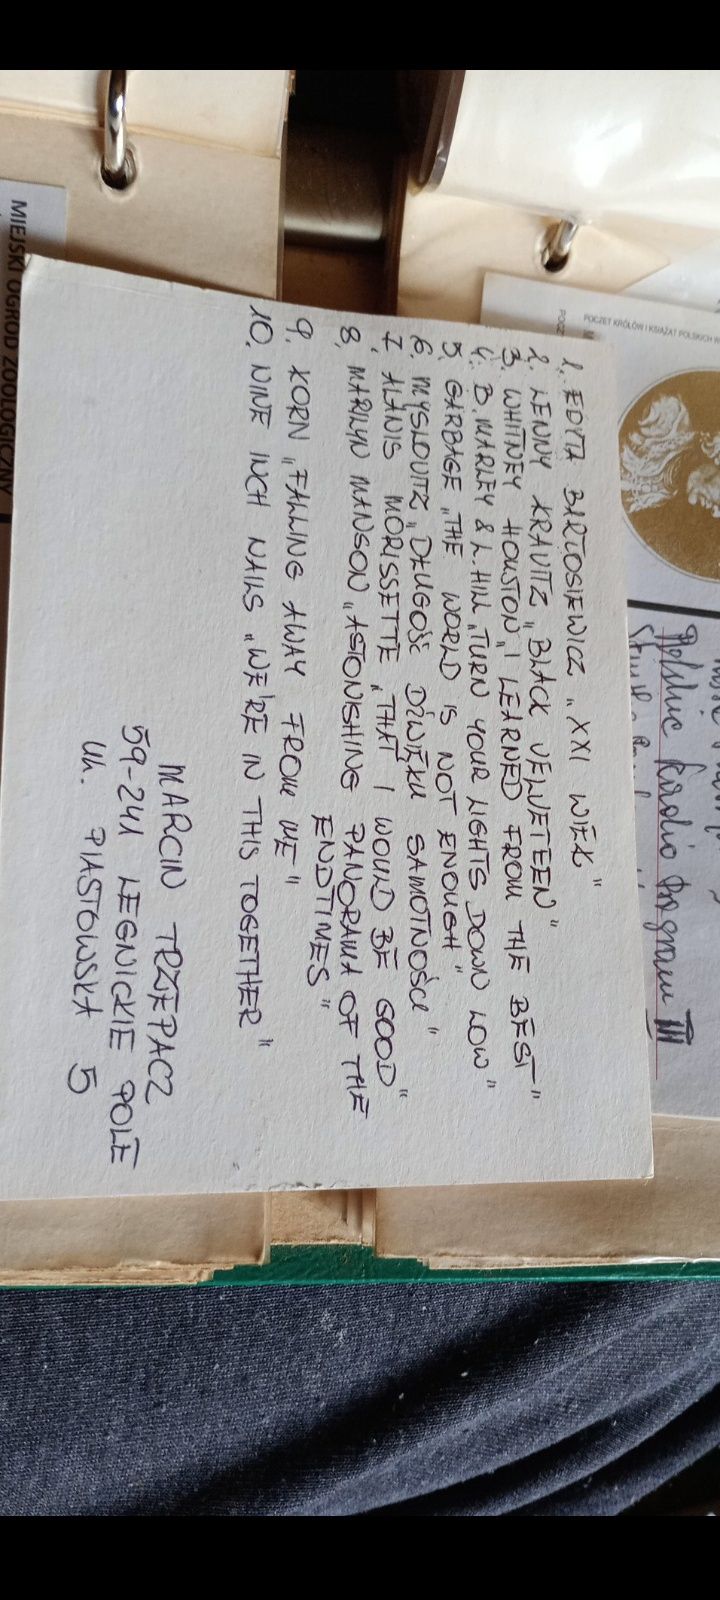 1. EDYTA BARTOSIEWICZ „XXI WIEK"
2. LENNY KRAVITZ „BLACK VELVETEEN"
3. WHITNEY HOUSTON „I LEARNED FROM THE BEST"
4. B. MARLEY & L. HILL „TURN YOUR LIGHTS DOWN LOW"
5. GARBAGE „THE WORLD IS NOT ENOUGH"
6. MYSLOVITZ „DŁUGOŚĆ DŹWIĘKU SAMOTNOŚCI"
7. ALANIS MORISSETTE „THAT I WOULD BE GOOD"
8. MARILYN MANSON „ASTONISHING PANORAMA OF THE
ENDTIMES"
9. KORN „FALLING AWAY FROM ME"
10. NINE INCH NAILS „WE'RE IN THIS TOGETHER"
MARCIN TRZEPACZ
59-241 LEGNICKIE POLE
UL. PIASTOWSKA 5
MIEJSKI OGRÓD ZOOLOGICZNY
POCZET KRÓLÓW I KSIĄŻĄT POLSKICH
Polskie Radio Program III